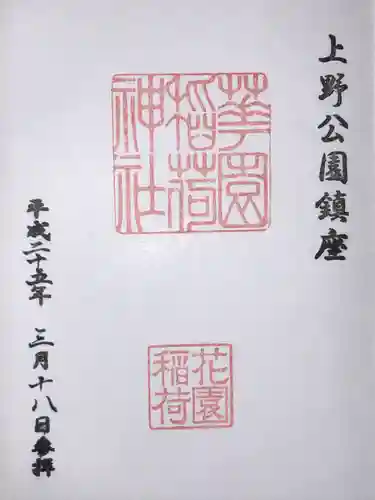 上野公園鎮座
華園
稲荷
神社
花園
稲荷
平成二十五年 三月十八日参拝